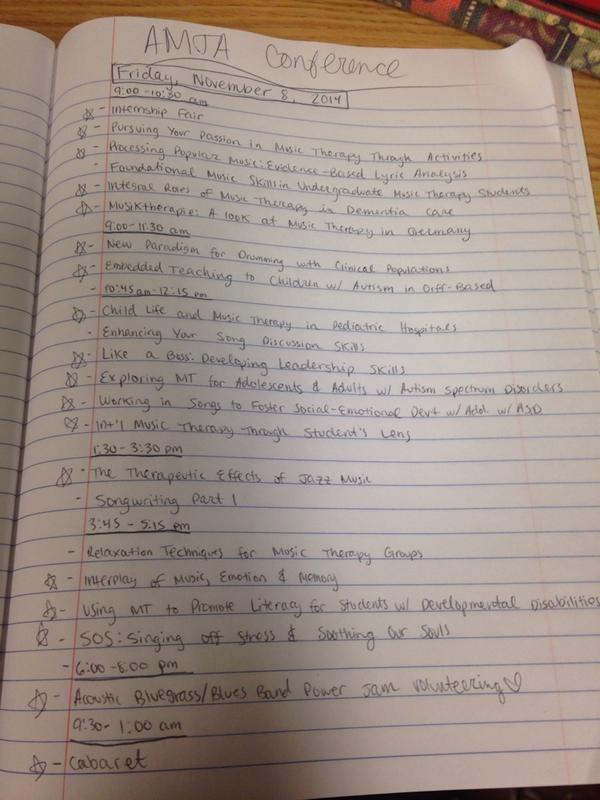 AMTA Conference
Friday, November 8, 2014
9:00-10:30 am
☆ - Internship Fair
☆ - Pursuing Your Passion in Music Therapy Through Activities
☆ - Processing Popular Music: Evidence-Based Lyric Analysis
- Foundational Music Skills in Undergraduate Music Therapy Students
☆ - Integral Roles of Music Therapy in Dementia Care
☆ - Musiktherapie: A look at Music Therapy in Germany
9:00-11:30 am
☆ - New Paradigm for Drumming with Clinical Populations
☆ - Embedded Teaching to Children w/ Autism in Orff-Based
- 10:45am-12:15 pm
☆ - Child Life and Music Therapy in Pediatric Hospitals
- Enhancing Your Song Discussion Skills
☆ - Like a Boss: Developing Leadership Skills
☆ - Exploring MT for Adolescents & Adults w/ Autism Spectrum Disorders
☆ - Working in Songs to Foster Social-Emotional Devt w/ Add. w/ ASD
☆ - Int'l Music Therapy Through Student's Lens
1:30-3:30 pm
☆ - The Therapeutic Effects of Jazz Music
- Songwriting Part 1
3:45-5:15 pm
- Relaxation Techniques for Music Therapy Groups
☆ - Interplay of Music, Emotion & Memory
☆ - Using MT to Promote Literacy for Students w/ Developmental Disabilities
☆ - SOS: Singing Off Stress & Soothing Our Souls
- 6:00-8:00 pm
☆ - Acoustic Bluegrass/Blues Band Power Jam volunteering ♡
9:30-1:00 am
☆ - Cabaret